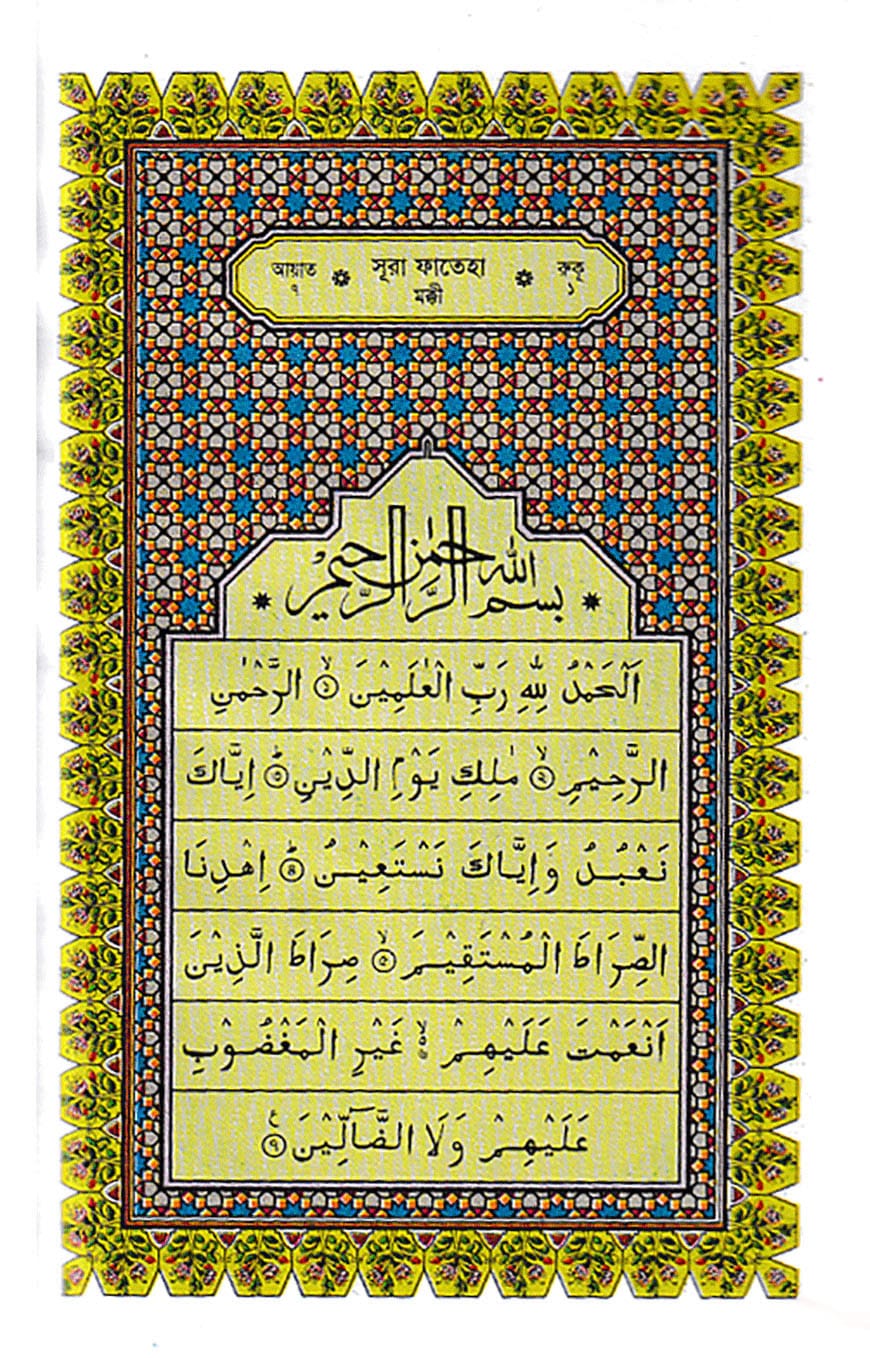 আয়াত সূরা ফাতেহা রুকূ
৭ মক্কী ১
بسم الله الرحمٰن الرحيم
اَلْحَمْدُ لِلّٰهِ رَبِّ الْعٰلَمِيْنَ ۙ ১ الرَّحْمٰنِ
الرَّحِيْمِ ۙ ২ مٰلِكِ يَوْمِ الدِّيْنِ ؕ ৩ اِيَّاكَ
نَعْبُدُ وَاِيَّاكَ نَسْتَعِيْنُ ؕ ৪ اِهْدِنَا
الصِّرَاطَ الْمُسْتَقِيْمَ ۙ ৫ صِرَاطَ الَّذِيْنَ
اَنْعَمْتَ عَلَيْهِمْ ۙ غَيْرِ الْمَغْضُوْبِ
عَلَيْهِمْ وَلَا الضَّآلِّيْنَ ৭ ع